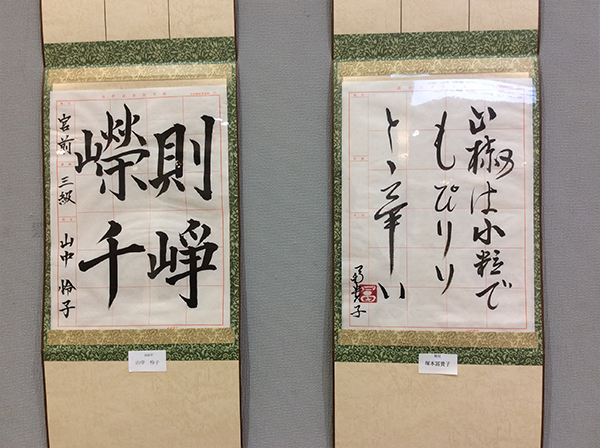 則崢
嶸千
宮前 三級 山中 怜子
山中 怜子
山椒は小粒で
もぴりり
と辛い
富貴子
塚本富貴子